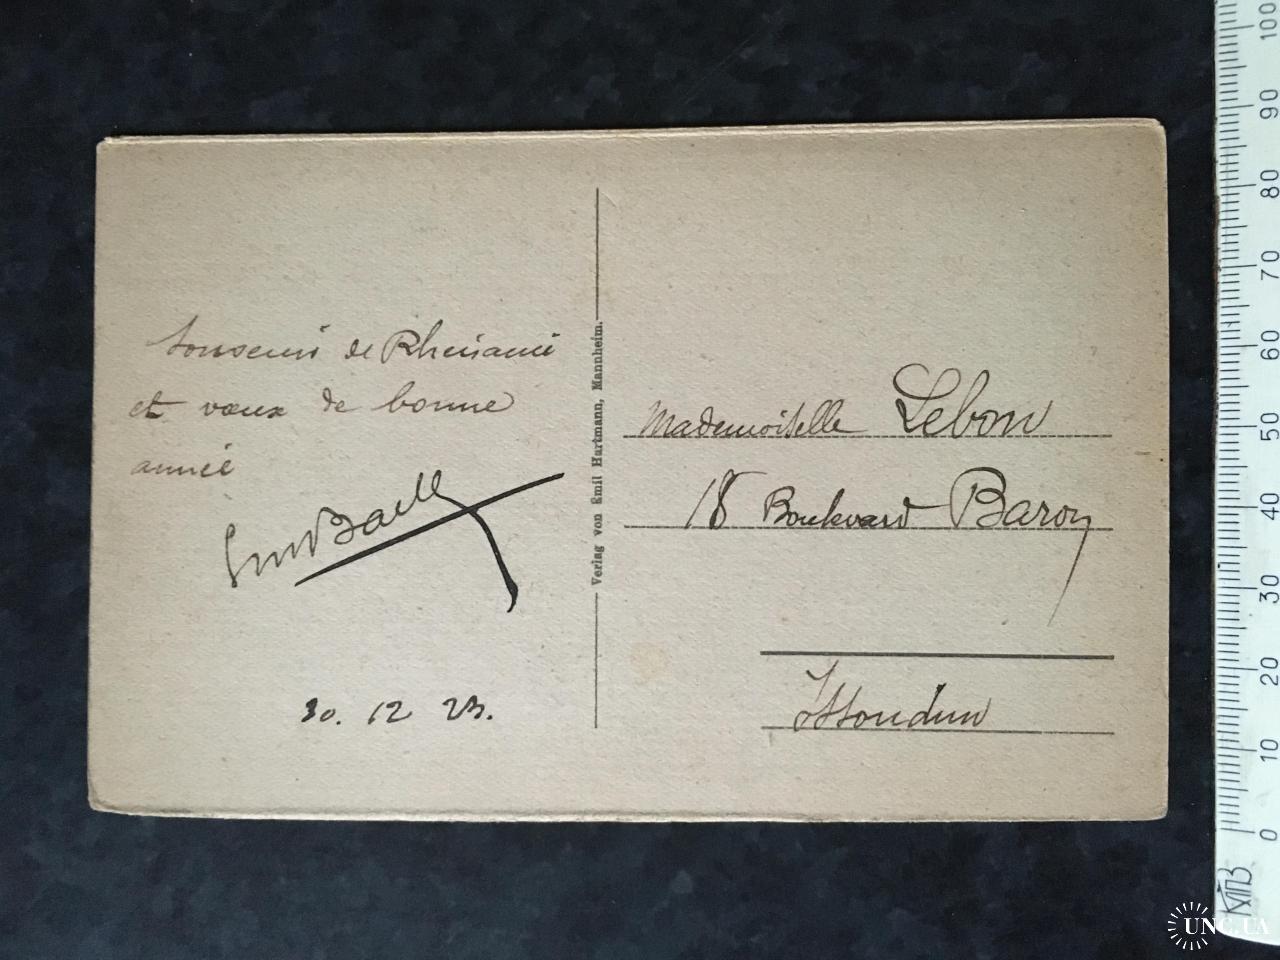 Souvenir de Rhénanie
et vœux de bonne
année
30. 12 23.
Verlag von Emil Hartmann, Mannheim.
Mademoiselle Lebon
18 Boulevard Baron
Issoudun
100
90
80
70
60
50
40
30
20
10
0
UNC.UA